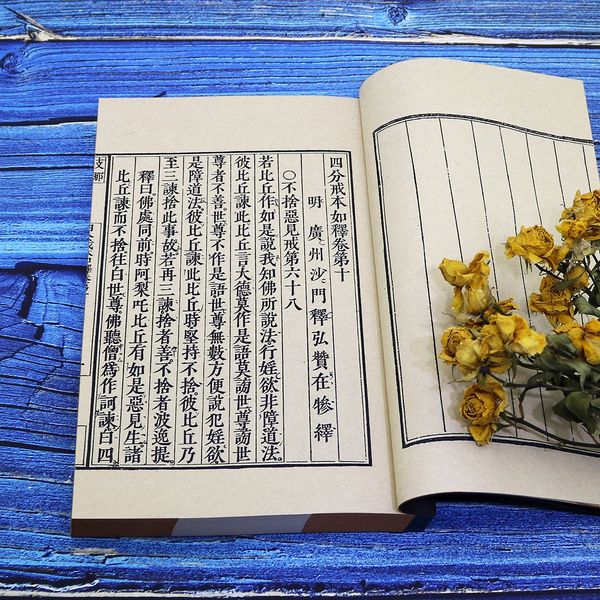 四分戒本如釋卷第十
明 廣州沙門釋弘贊在犙繹
〇不捨惡見戒第六十八
若比丘作如是說我知佛所說法行婬欲非障道法。
彼比丘諫此比丘言大德莫作是語莫謗世尊謗世
尊者不善。世尊不作是語世尊無數方便說犯婬欲
是障道法。彼比丘諫此比丘時堅持不捨。彼比丘乃
至三諫捨此事故若再三諫捨者善。不捨者波逸提。
釋曰。佛處同前時阿梨吒比丘有如是惡見生諸
比丘諫而不捨往白世尊。佛聽僧爲作訶諫白四
支那